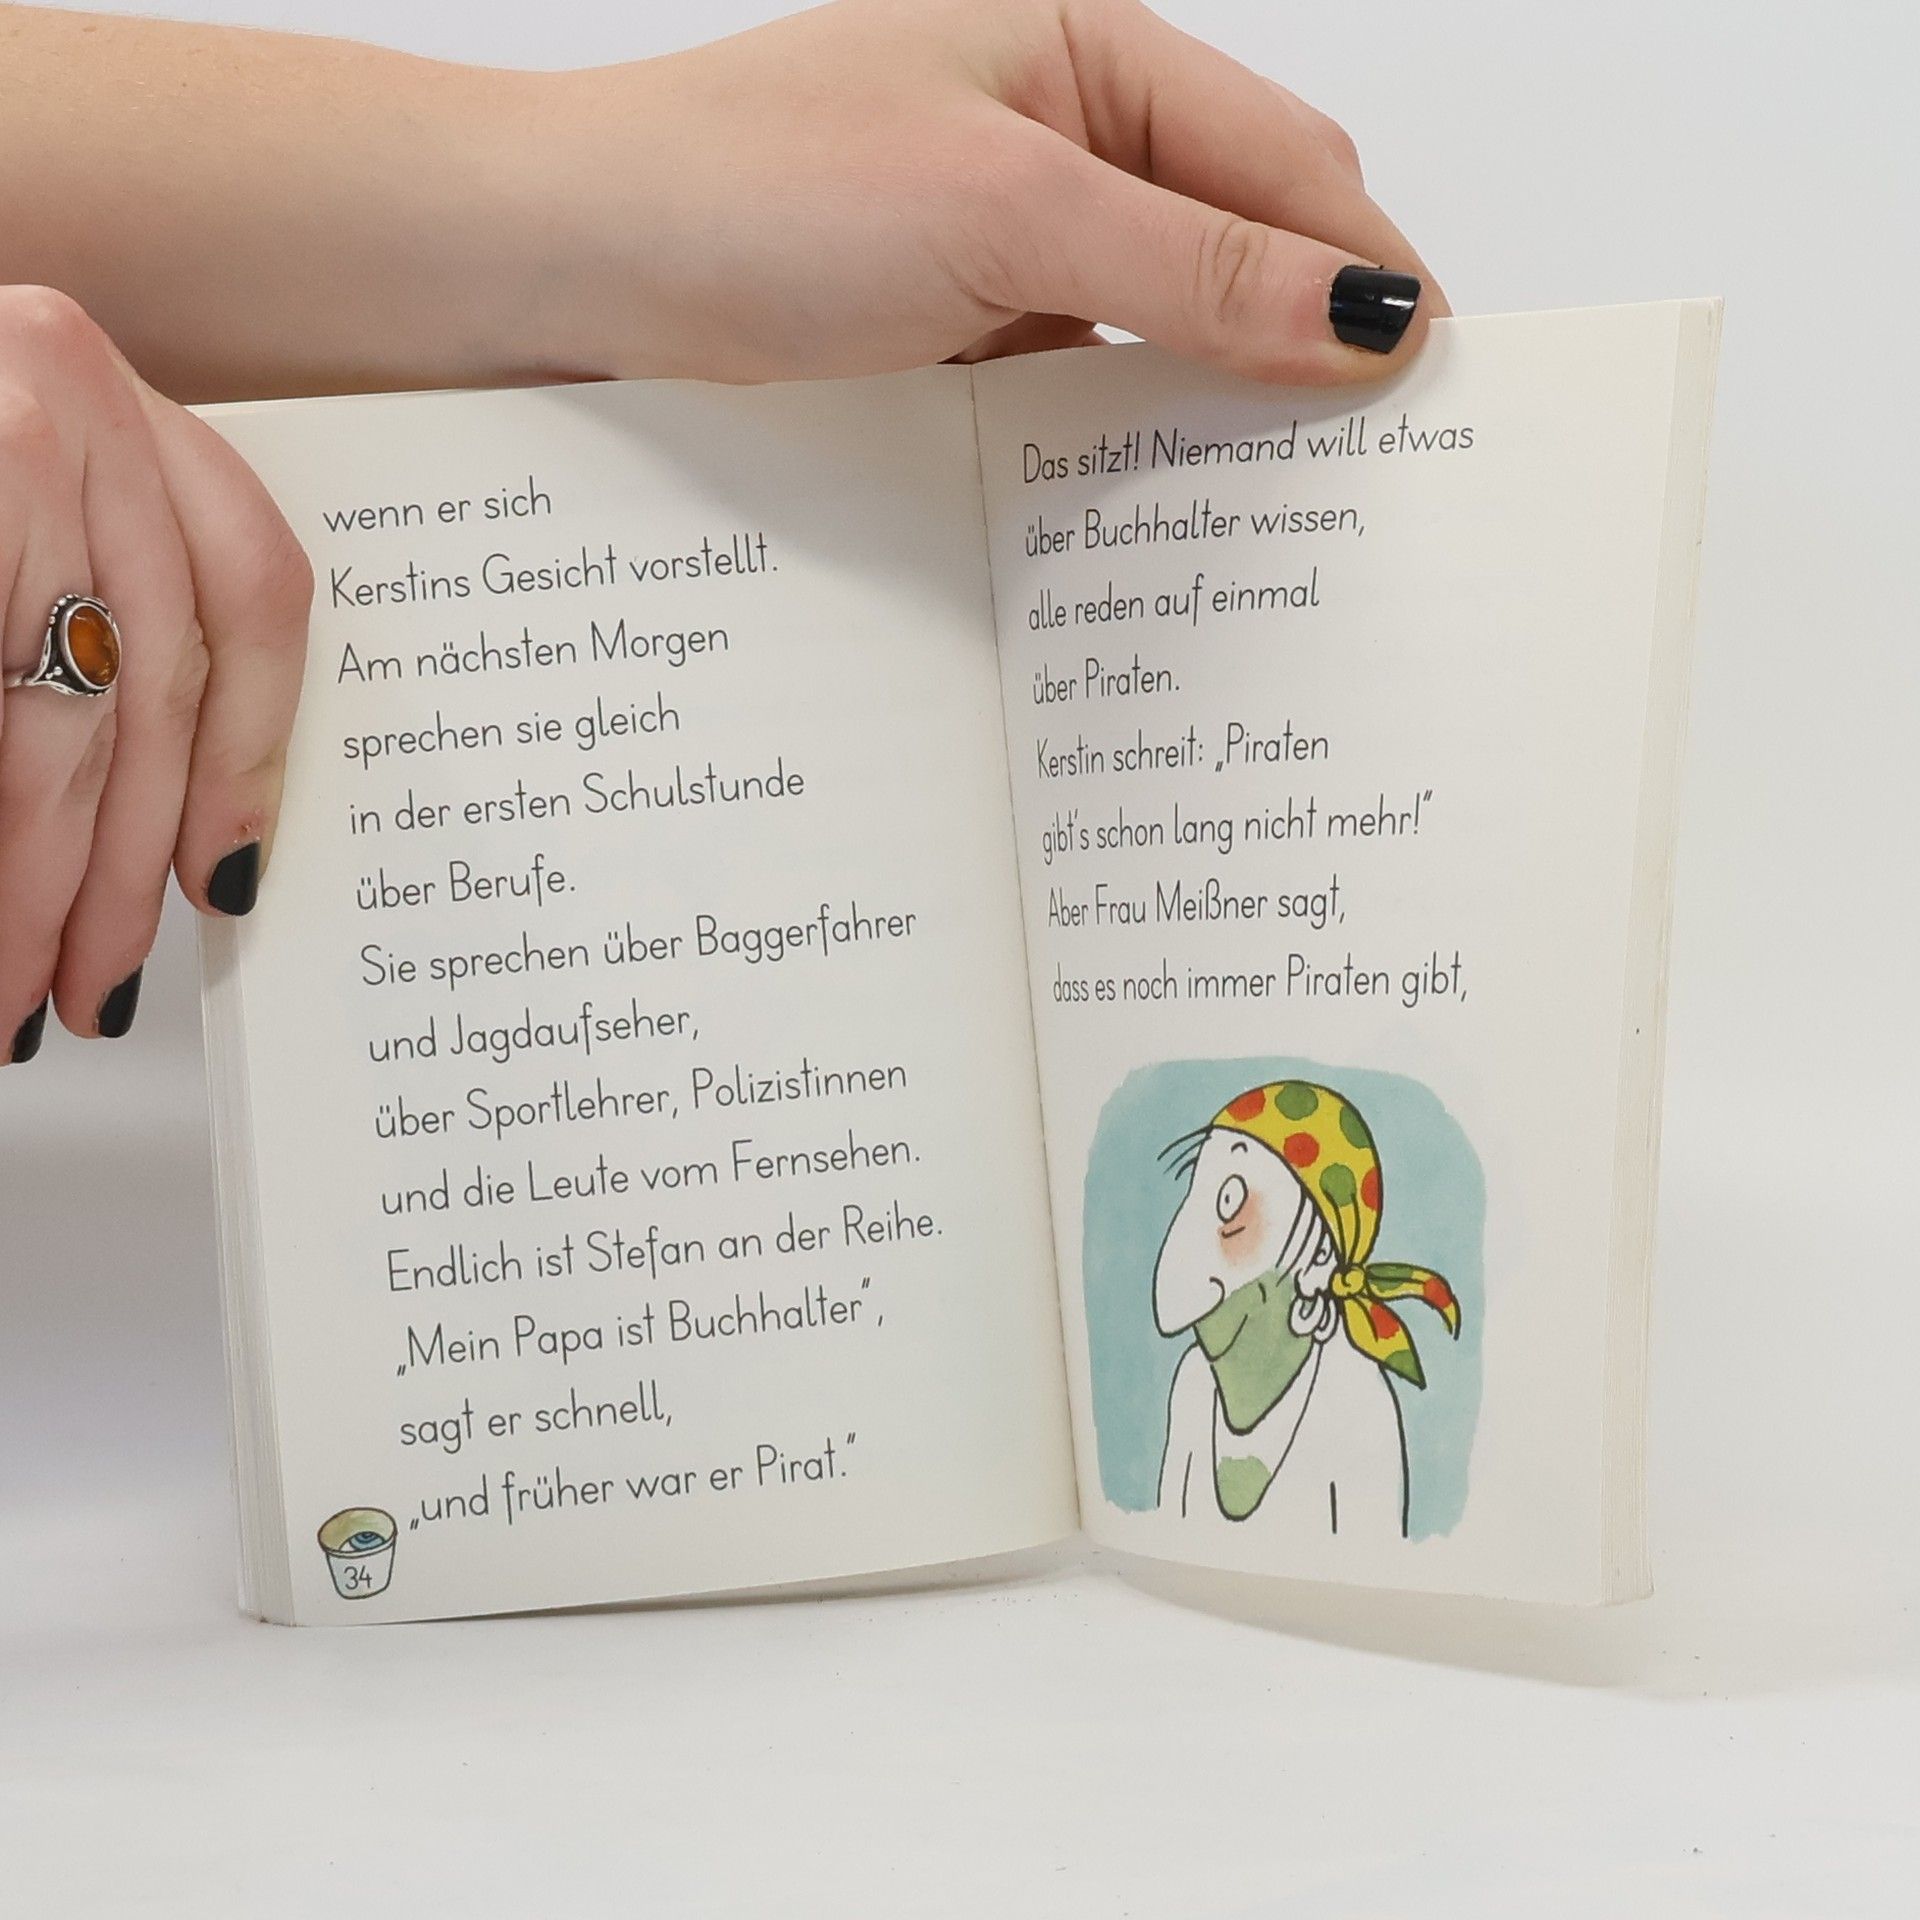 wenn er sich
Kerstins Gesicht vorstellt.
Am nächsten Morgen
sprechen sie gleich
in der ersten Schulstunde
über Berufe.
Sie sprechen über Baggerfahrer
und Jagdaufseher,
über Sportlehrer, Polizistinnen
und die Leute vom Fernsehen.
Endlich ist Stefan an der Reihe.
„Mein Papa ist Buchhalter“,
sagt er schnell,
„und früher war er Pirat.“
34
Das sitzt! Niemand will etwas
über Buchhalter wissen,
alle reden auf einmal
über Piraten.
Kerstin schreit: „Piraten
gibt's schon lang nicht mehr!“
Aber Frau Meißner sagt,
dass es noch immer Piraten gibt,